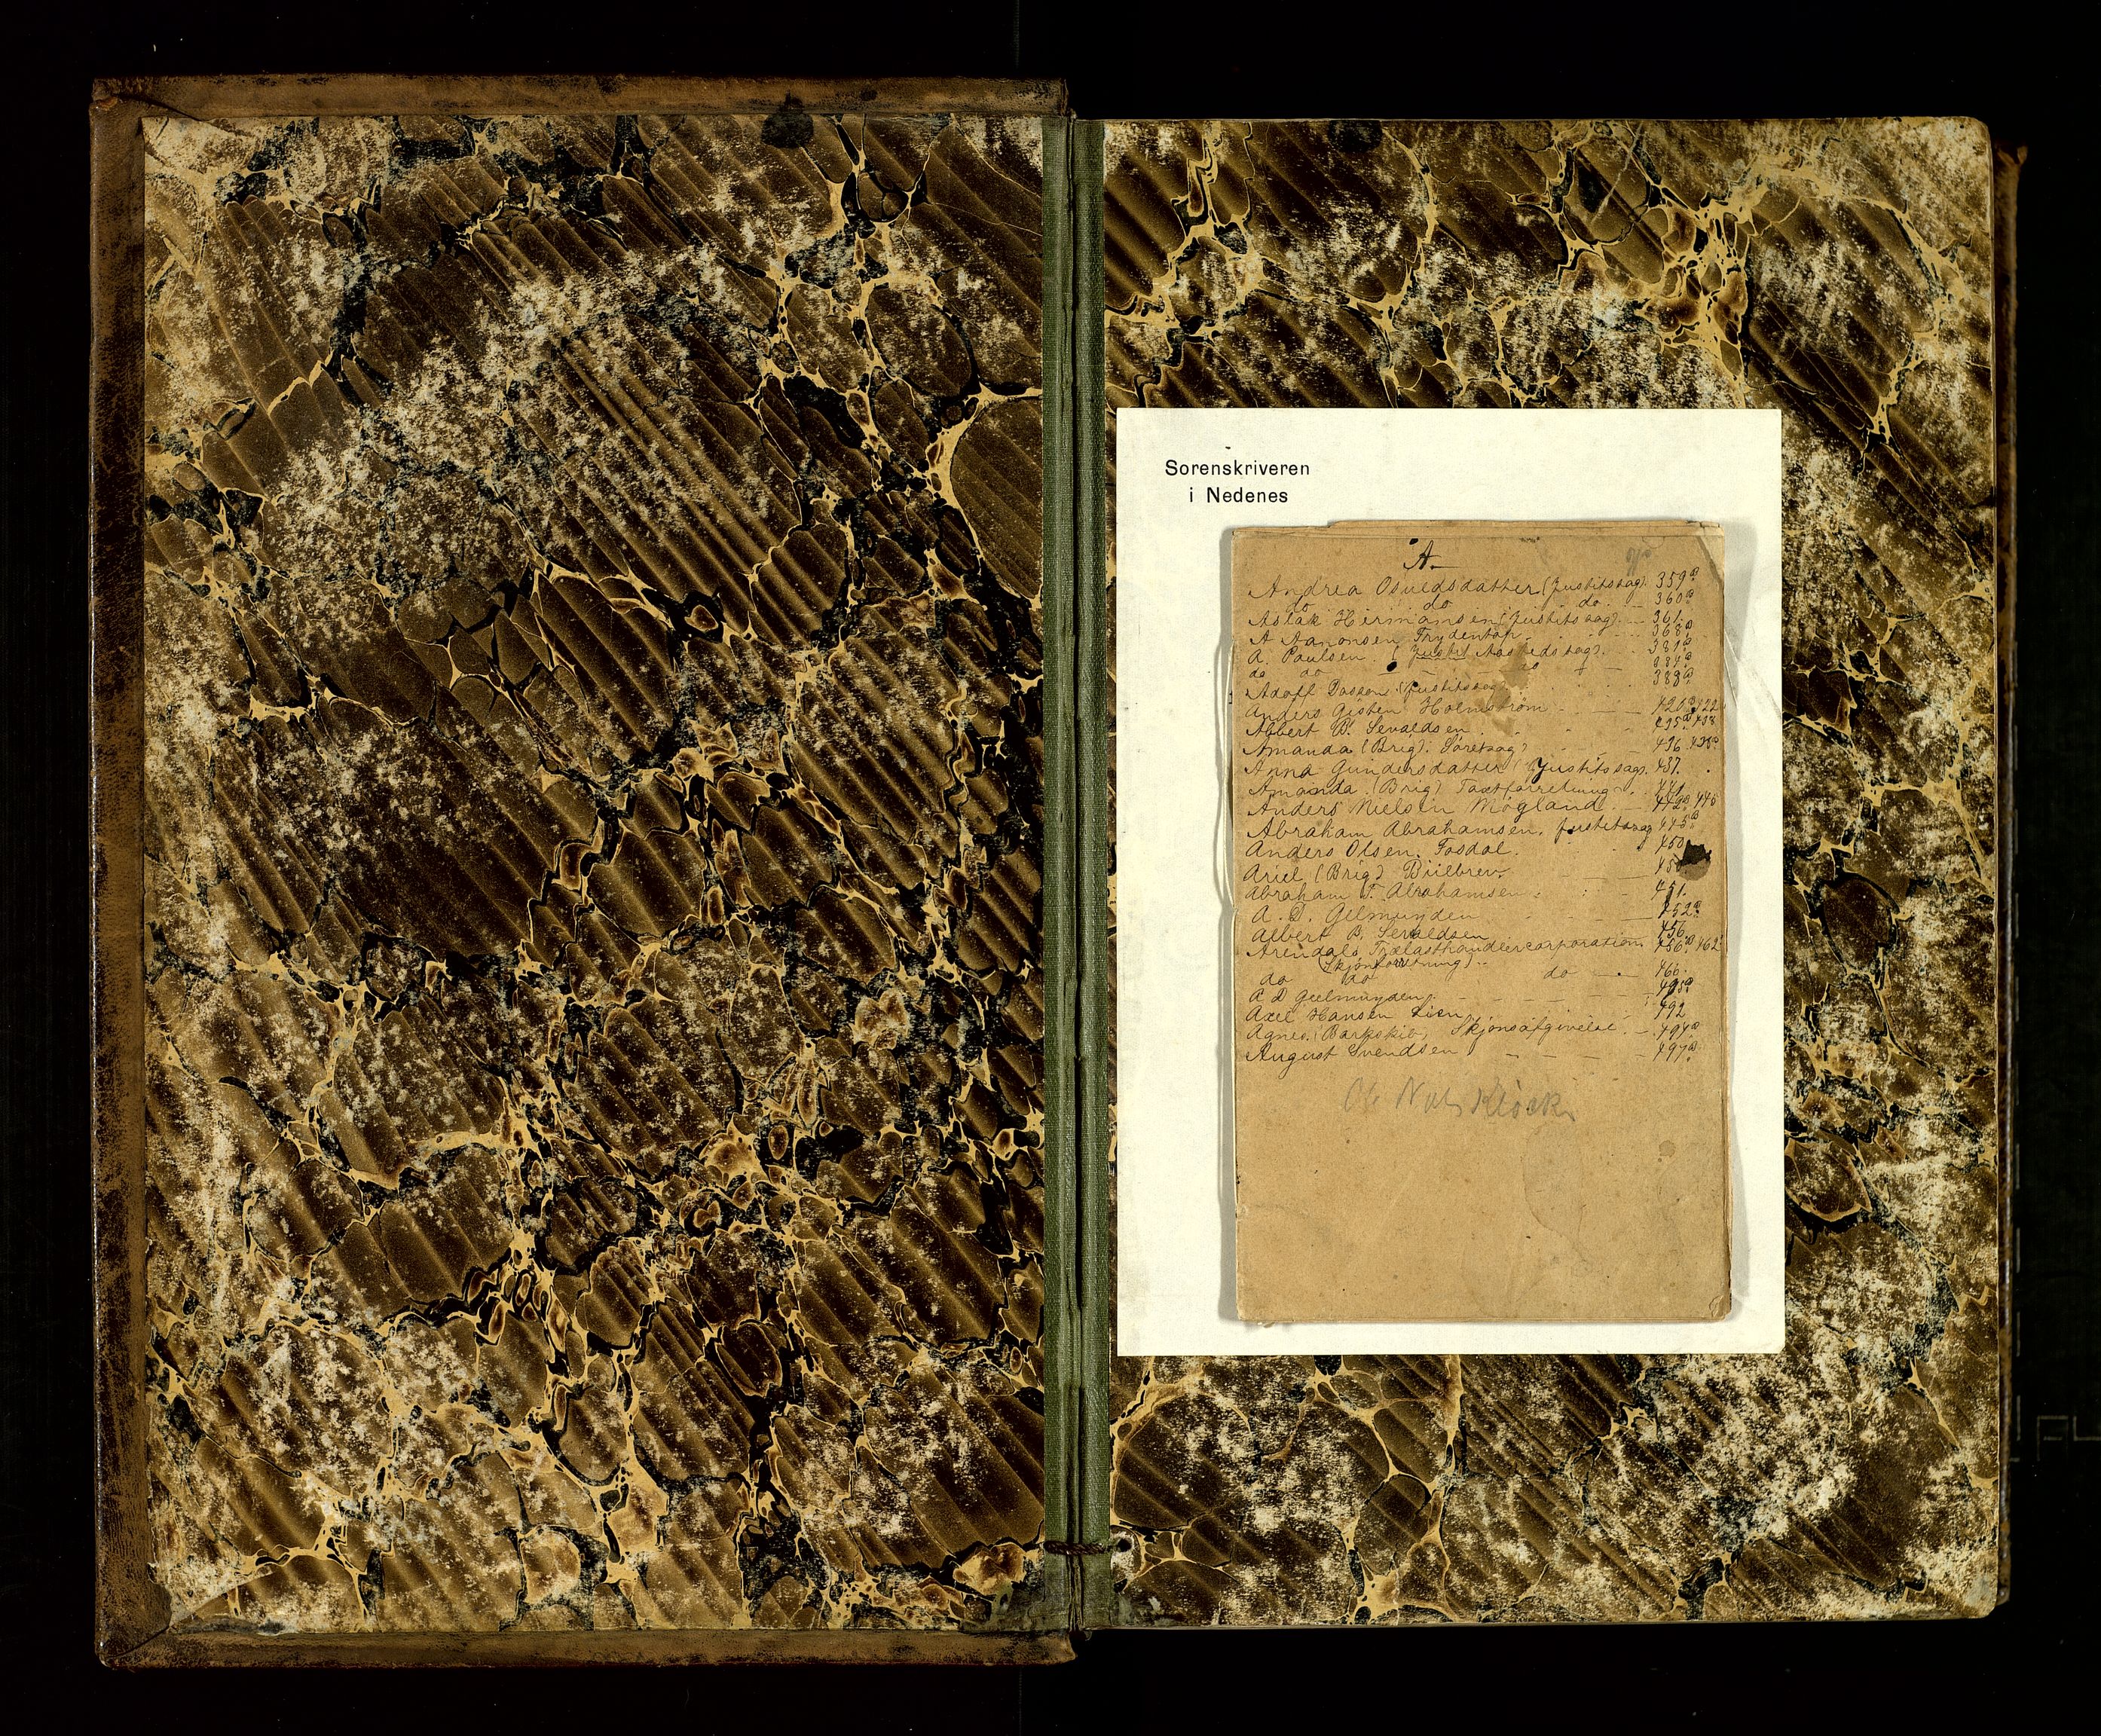 Sorenskriveren
i Nedenes
A.
Andrea Osuldsdatter (Justitssag). 359a
do do do. 360a
Aslak Hermansen (Justitssag) 361.
A Aanonsen Frydentop. 368a
A. Paulsen. (Justits Aastedssag). 381a
do do do 384a
Adolf (Justitssag) 389a
Anders Gjesten Holmstrøm 420a, 422
Albert B. Sevaldsen 435a 438
Amanda (Brig). Søretssag 436 438a
Anna Gundersdatter (Justitssag). 437.
Amanda (Brig) Taxtforretning. 441.
Anders Nielsen Mögland. 442a 445
Abraham Abrahamsen. Justitssag 445a
Anders Olsen. Fosdal. 450
Ariel (Brig) Biilbrev
Abraham T. Abrahamsen. 451.
A. D. Gelmuyden 452a
Albert B. Sevaldsen 456
Arendals Trælasthandlercorporation 456a 462
(Skjönforretning)
do do do 466.
A D Geelmuyden. 485a
Axel Hansen Lien. 492
Agnes. (Barkskib) Skjönsafgivelse. 494a
August Svendsen 497a